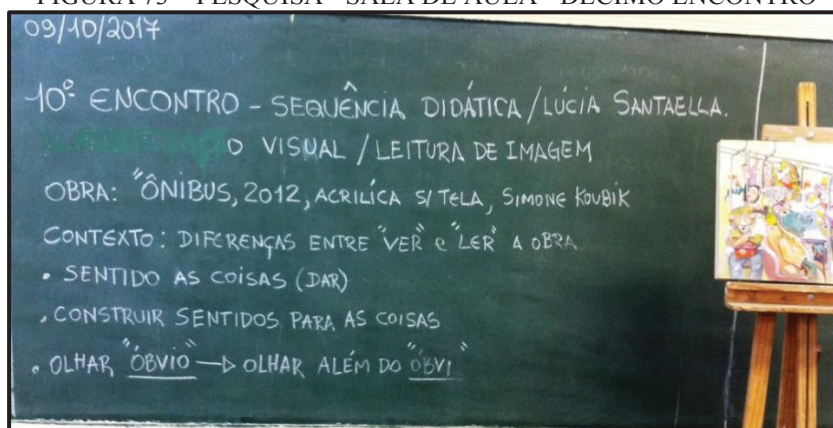 FIGURA 75 – PESQUISA – SALA DE AULA – DÉCIMO ENCONTRO
09/10/2017
10º ENCONTRO - SEQUÊNCIA DIDÁTICA / LÚCIA SANTAELLA.
O VISUAL / LEITURA DE IMAGEM
OBRA: "ÔNIBUS, 2012, ACRILÍCA S/ TELA, SIMONE KOUBIK
CONTEXTO: DIFERENÇAS ENTRE "VER" e "LER" A OBRA
• SENTIDO AS COISAS (DAR)
• CONSTRUIR SENTIDOS PARA AS COISAS
• OLHAR "ÓBVIO" → OLHAR ALÉM DO "ÓBVI"